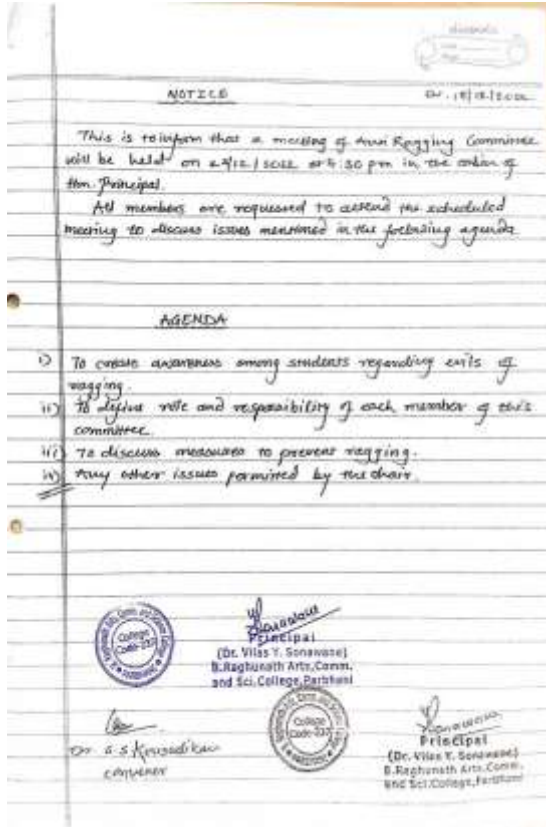 NOTICE
This is to inform that a meeting of Anti Ragging Committee
will be held on at 4:30 pm in the of
Hon. Principal.
All members are requested to attend the scheduled
meeting to discuss issues mentioned in the following agenda
AGENDA
i) To create awareness among students regarding evils of
ragging.
ii) To define role and responsibility of each member of this
committee.
iii) To discuss measures to prevent ragging.
iv) Any other issues permitted by the chair.
College
Code-
Principal
(Dr. Vilas Y. Sonawane)
B.Raghunath Arts,Comm.
and Sci.College,Parbhani
College
Code-
Dr
convener
Principal
(Dr. Vilas Y. Sonawane)
B.Raghunath Arts,Comm.
and Sci.College,Parbhani